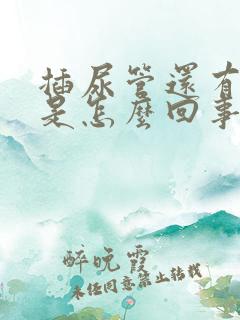 插尿管還有
是怎麼回事
醉晚霞
未经同意禁止转载